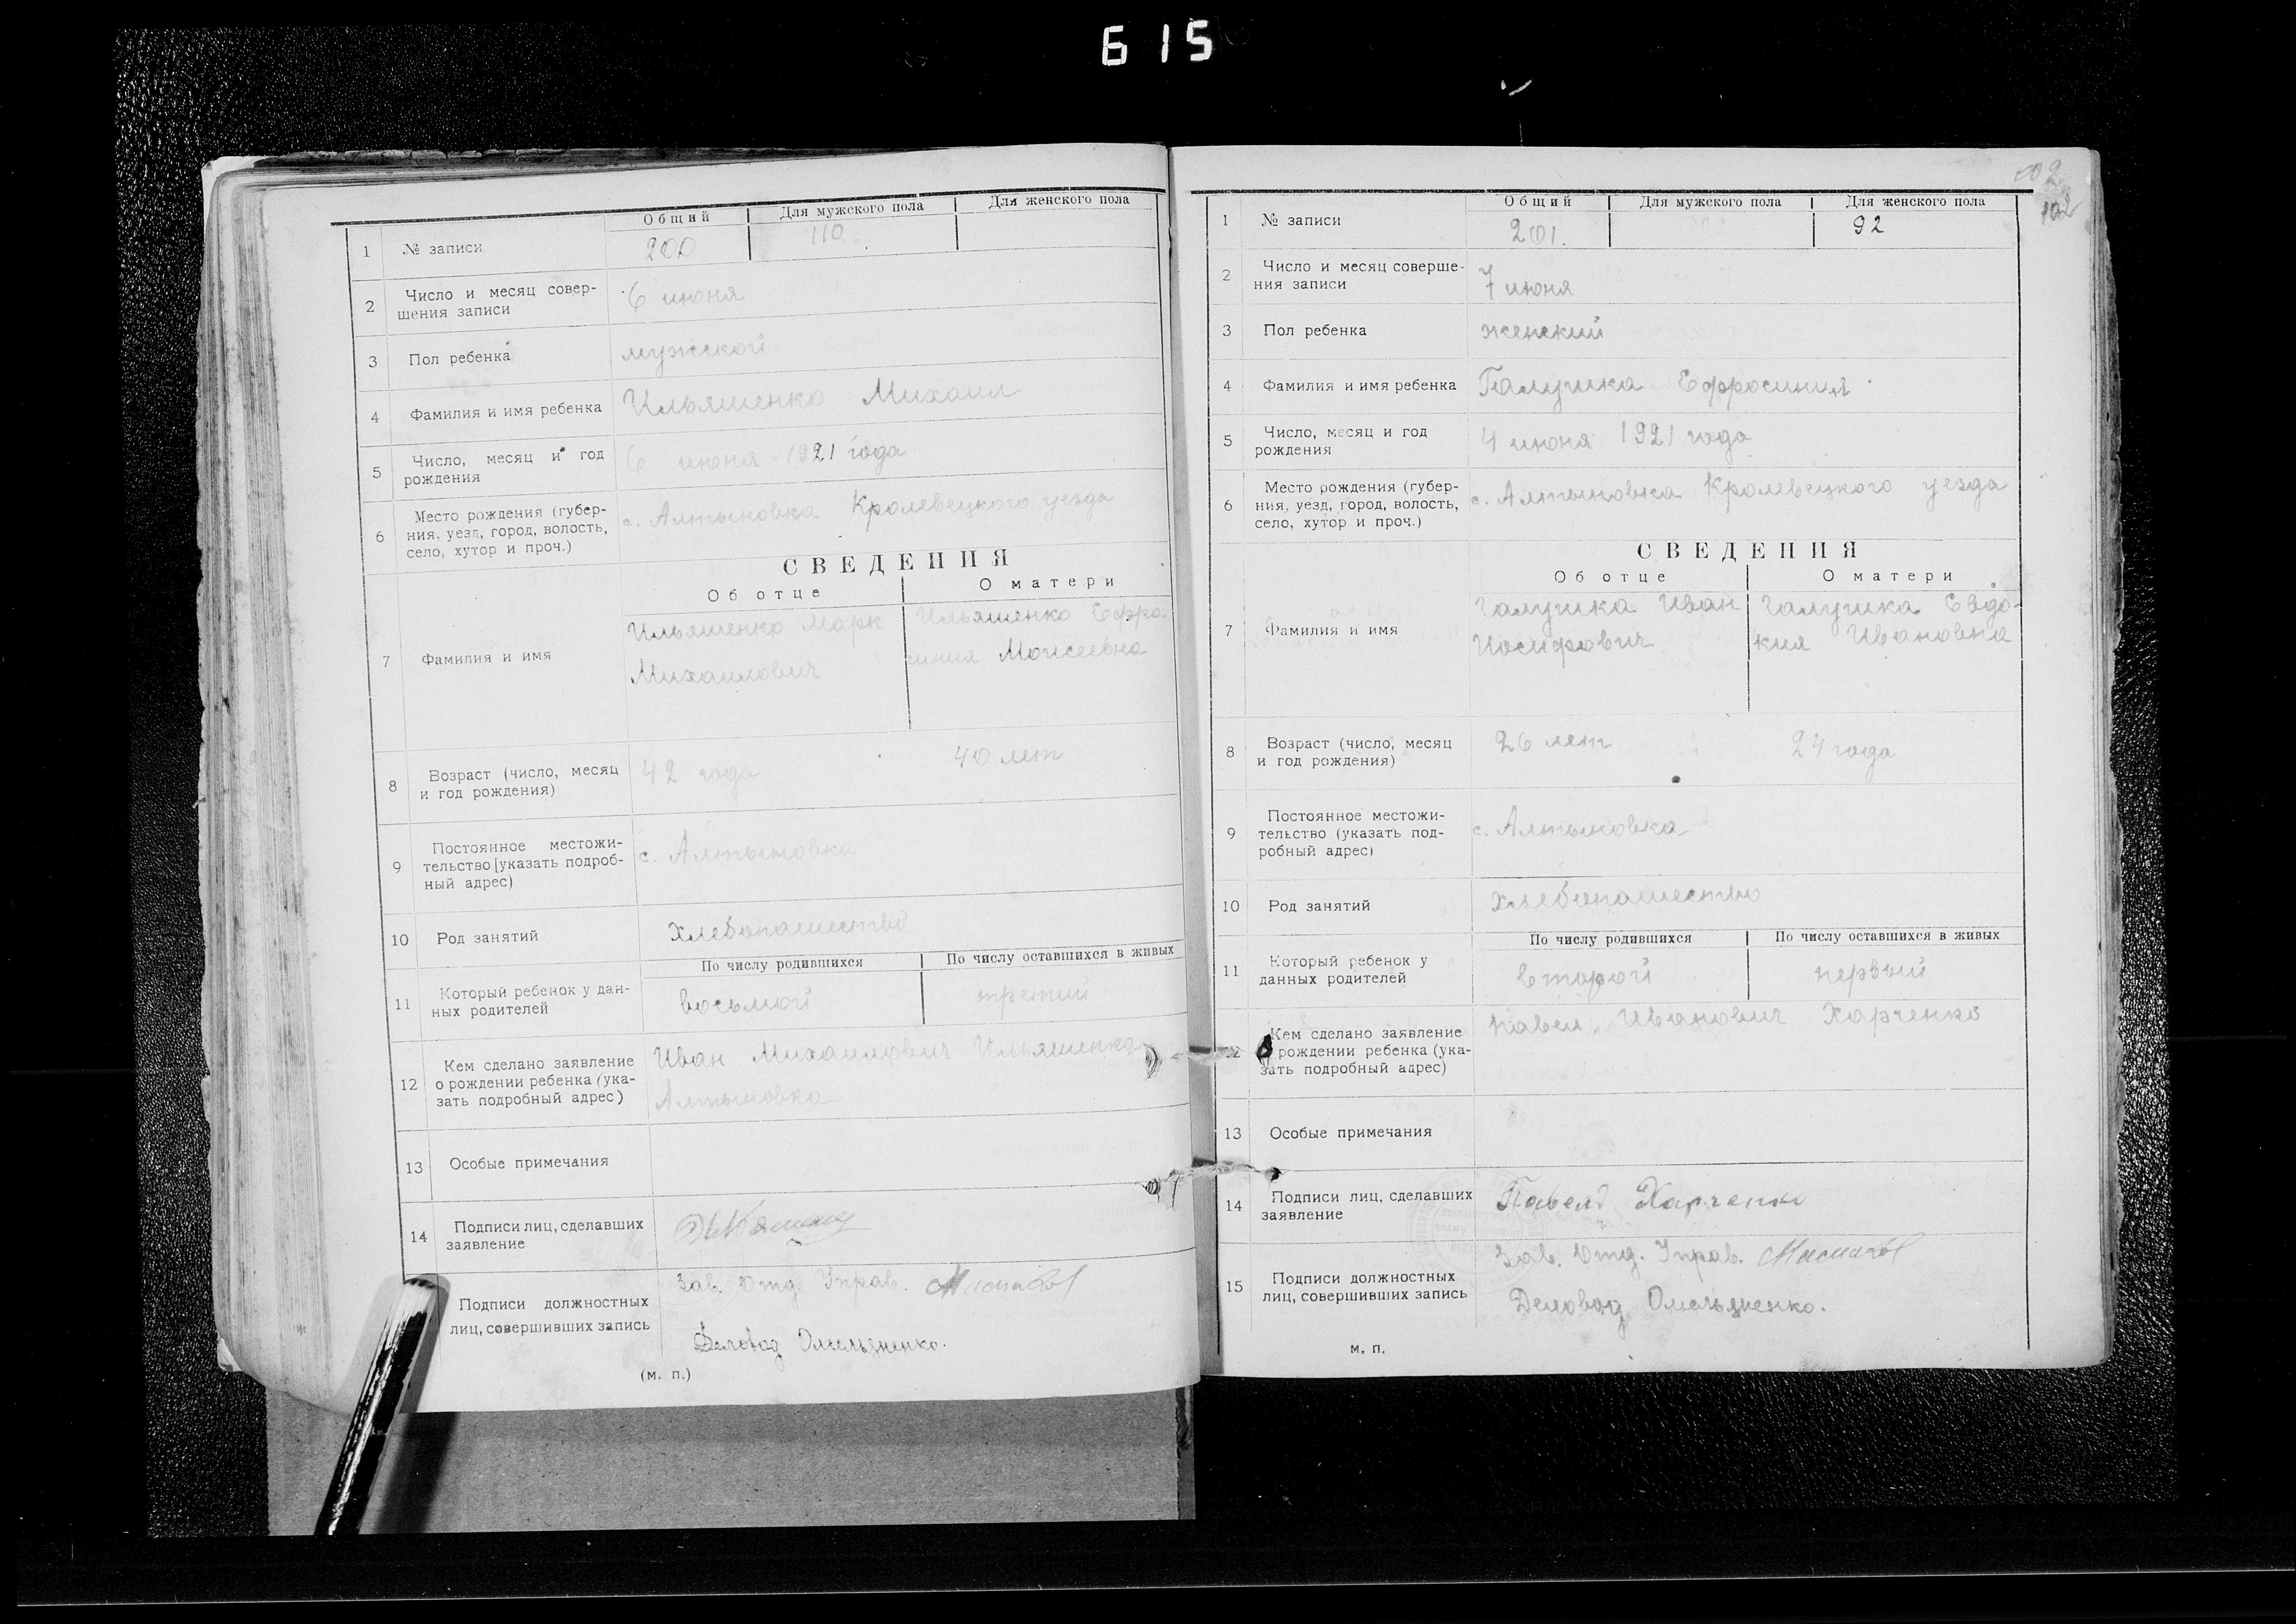 615
Общий Для мужского пола Для женского пола
1 № записи 200 110
2 Число и месяц совер-
шения записи 6 июня
3 Пол ребенка мужской
4 Фамилия и имя ребенка Ильяшенко Михаил
5 Число, месяц и год
рождения 6 июня 1921 года
6 Место рождения (губер-
ния, уезд, город, волость,
село, хутор и проч.) с. Алтыновка Кролевецкого уезда
СВЕДЕНИЯ
Об отце О матери
7 Фамилия и имя
Ильяшенко Марк
Михаилович
Ильяшенко Ефро-
синия Моисеевна
8 Возраст (число, месяц
и год рождения) 42 года 40 лет
9 Постоянное местожи-
тельство [указать подроб-
ный адрес) с. Алтыновка
10 Род занятий хлебопашество
По числу родившихся По числу оставшихся в живых
11 Который ребенок у дан-
ных родителей восьмой третий
12 Кем сделано заявление
о рождении ребенка (ука-
зать подробный адрес)
Иван Михаилович Ильяшенко
Алтыновка
13 Особые примечания
14 Подписи лиц, сделавших
заявление
Подписи должностных
лиц, совершивших запись
Зав. Отд. Управ.
Деловод Омельяненко.
(м. п.)
102
Общий Для мужского пола Для женского пола
1 № записи 201. 92
2 Число и месяц соверше-
ния записи 7 июня
3 Пол ребенка женский
4 Фамилия и имя ребенка Галушка Ефросиния
5 Число, месяц и год
рождения 4 июня 1921 года
6 Место рождения (губер-
ния, уезд, город, волость,
село, хутор и проч.) с. Алтыновка Кролевецкого уезда
СВЕДЕНИЯ
Об отце О матери
7 Фамилия и имя
Галушка Иван
Иосифович
Галушка Евдо-
кия Ивановна
8 Возраст (число, месяц
и год рождения) 26 лет 24 года
9 Постоянное местожи-
тельство (указать под-
робный адрес) с. Алтыновка
10 Род занятий хлебопашество
По числу родившихся По числу оставшихся в живых
11 Который ребенок у
данных родителей второй первый
12 Кем сделано заявление
рождении ребенка (ука-
зать подробный адрес)
Павел Иванович Харченко
13 Особые примечания
14 Подписи лиц, сделавших
заявление Павелъ Харченко
15 Подписи должностных
лиц, совершивших запись
Зав. Отд. Управ.
Деловод Омельяненко.
м. п.